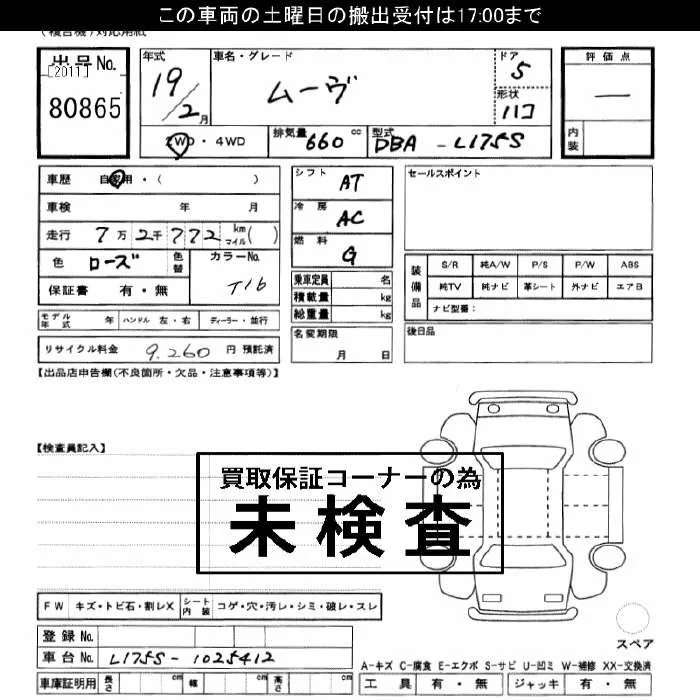 この車両の土曜日の搬出受付は17:00まで
(複合機)対応用紙
出品No. [2011] 80865
年式 19/2月
車名・グレード ムーヴ
ドア 5
形状 ハコ
評価点 —
内装
2WD・4WD
排気量 660 cc
型式 DBA - L175S
車歴 自家用・( )
車検 年 月
走行 7万2千772 km マイル( )
色 ローズ 色替
カラーNo. T16
保証書 有・無
シフト AT
冷房 AC
燃料 G
乗車定員 名
積載量 kg
総重量 kg
名変期限 月 日
セールスポイント
装備品
S/R 純A/W P/S P/W ABS
純TV 純ナビ 革シート 外ナビ エアB
ナビ型番:
後日品
モデル年式 年 ハンドル 左・右 ディーラー・並行
リサイクル料金 9,260 円 預託済
【出品店申告欄(不良箇所・欠品・注意事項等)】
【検査員記入】
買取保証コーナーの為
未検査
FW キズ・トビ石・割レX シート内装 コゲ・穴・汚レ・シミ・破レ・スレ
登録No.
車台No. L175S-1025412
車庫証明用 長さ cm 幅 cm 高さ cm
スペア
A-キズ C-腐食 E-エクボ S-サビ U-凹ミ W-補修 XX-交換済
工具 有・無 ジャッキ 有・無